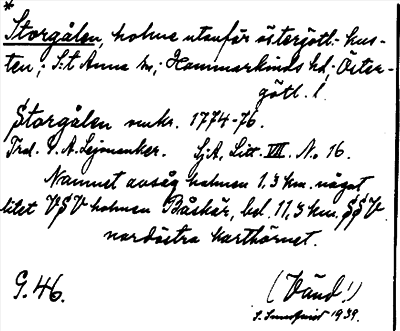 *
Storgålen, holme utanför östergötl. kus-
ten; S:t Anna sn; Hammarkinds hd; Öster-
götl. l.
Storgålen omkr. 1774-76.
Trol. V. A. Lejonanker. Sj.A, Litt. VIII. No 16.
Namnet avsåg holmen 1,3 km. något
litet VSV holmen Båskär, bel. 11,3 km. SSV
nordöstra karthörnet.
G. 46.
(Vänd!)
1939.